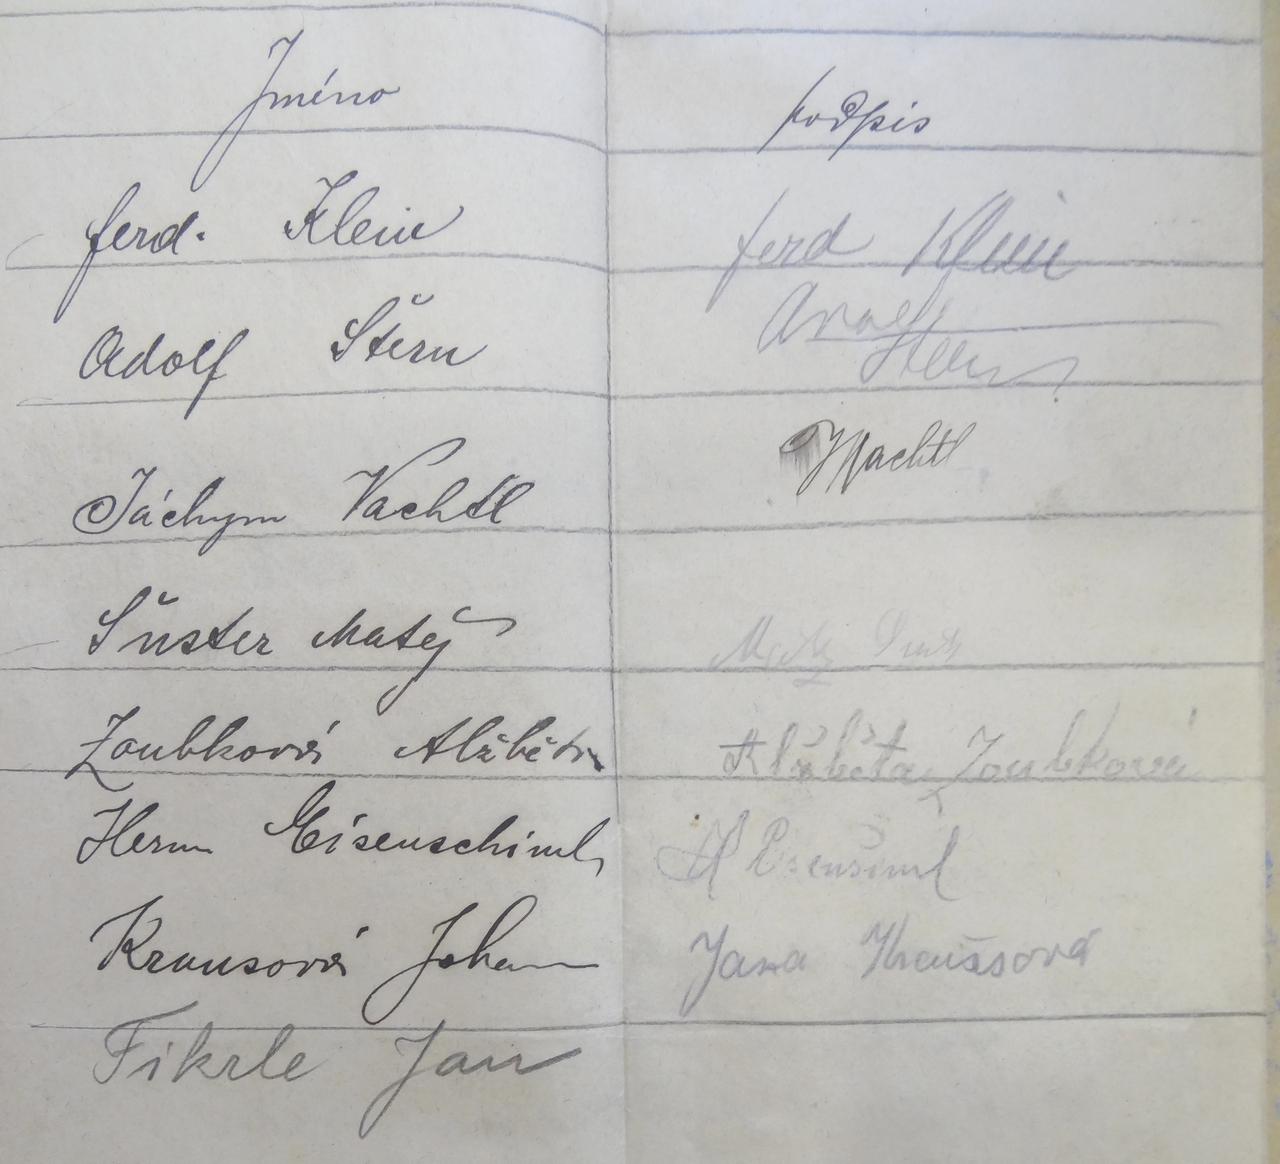 Jméno podpis
ferd. Klein ferd Klein
Adolf Štern Adolf
Stern
Jáchym Vachtl JWachtl
Šuster Matěj
Zoubková Alžběta Alžběta Zoubková
Herm Eisenschiml H Eisenšiml
Krausová Johan Jana Kraussová
Fikrle Jan